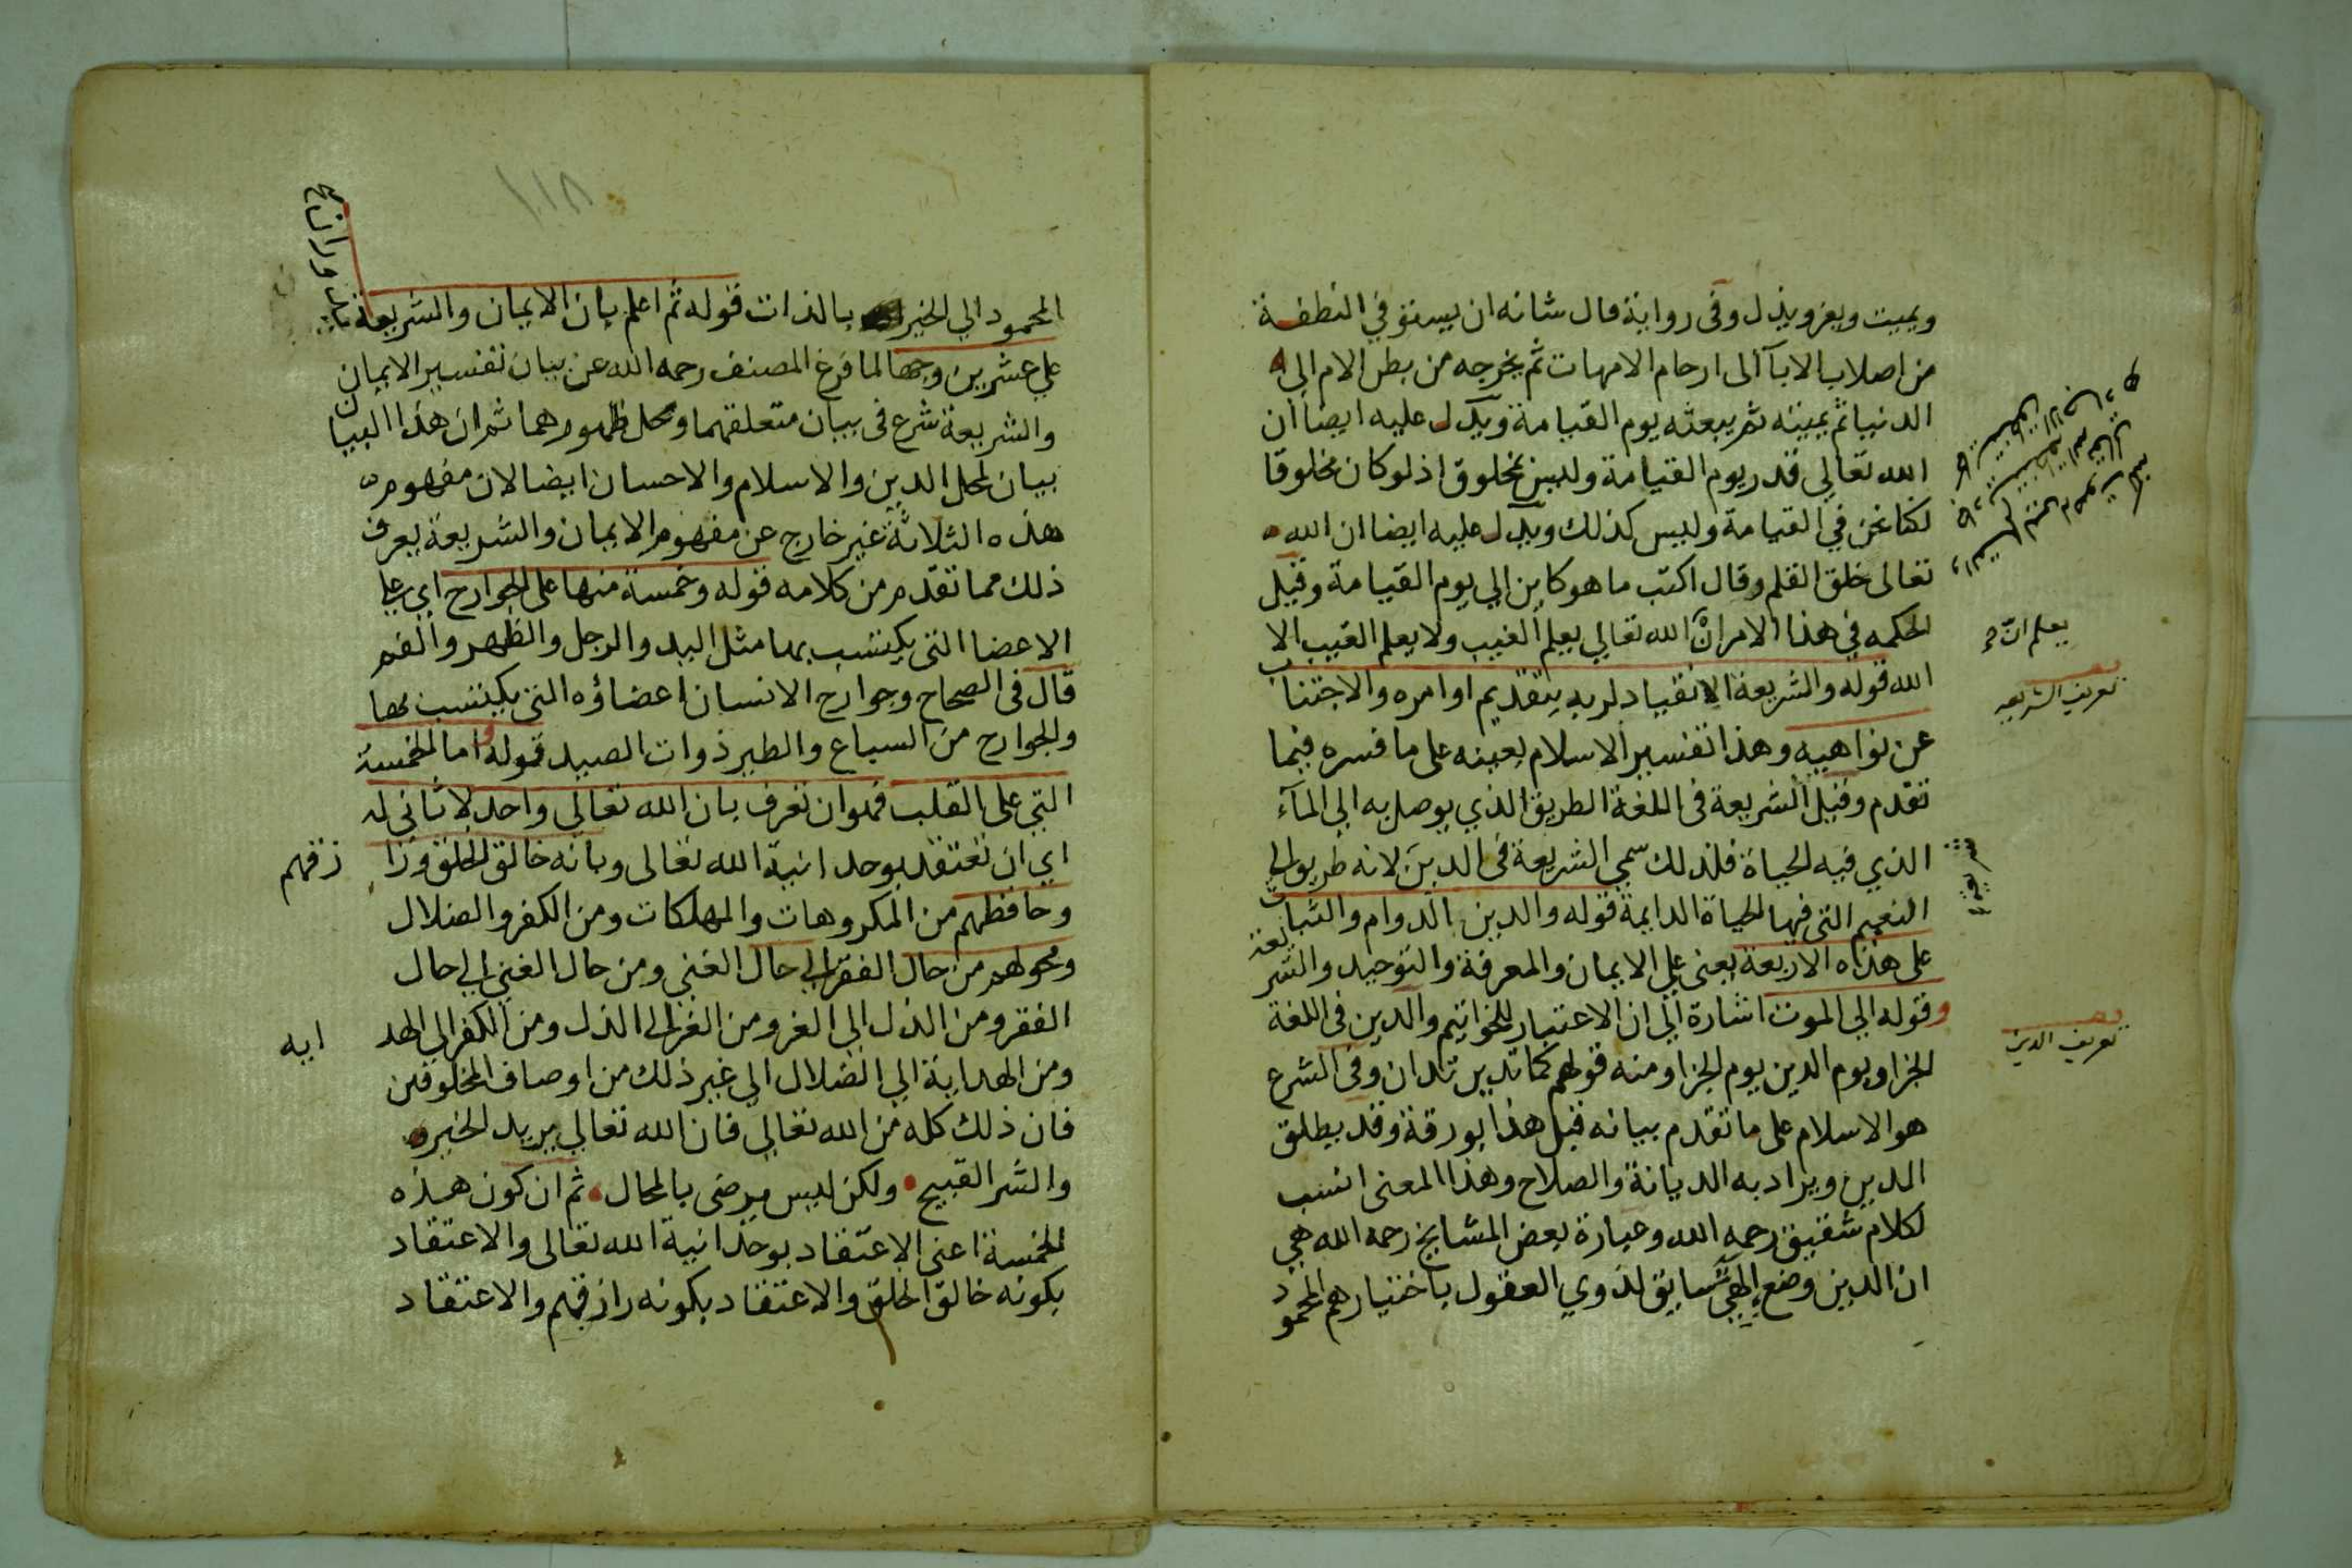 ويميت ويعز ويذل وفى رواية قال شانه ان يسوق النطفة
من اصلاب الابآ الى ارحام الامهات ثم يخرجه من بطن الام الى
الدنيا ثم يميته ثم يبعثه يوم القيامة ويدل عليه ايضا ان
الله تعالى قدر يوم القيامة وليس بمخلوق اذ لو كان مخلوقا
لكنا نحن في القيامة وليس كذلك ويدل عليه ايضا ان الله
تعالى خلق القلم وقال اكتب ما هو كاين الى يوم القيامة وقيل
الحكمه في هذا الامر ان الله تعالى يعلم الغيب ولا يعلم الغيب الا
الله قوله والشريعة الانقياد لربه بتقديم اوامره والاجتناب
عن نواهيه وهذا تفسير الاسلام بعينه على ما فسره فيما
تقدم وقيل الشريعة فى اللغة الطريق الذي يوصل به الى المآء
الذي فيه الحياة فلذلك سمي الشريعة فى الدين لانه طريق الى
النعيم التى فيها الحياة الدايمة قوله والدين الدوام والثبات
على هذه الاربعة يعنى على الايمان والمعرفة والتوحيد والشريعة
وقوله الى الموت اشارة الى ان الاعتبار للخواتيم والدين فى اللغة
الجزا ويوم الدين يوم الجزا ومنه قولهم كما تدين تدان وفى الشرع
هو الاسلام على ما تقدم بيانه قبل هذا بورقة وقد يطلق
الدين ويراد به الديانة والصلاح وهذا المعنى انسب
لكلام شقيق رحمه الله وعبارة بعض المشايخ رحمه الله هي
ان الدين وضع الهي سايق لذوي العقول باختيارهم المحمود
يعلم ان
تعريف الشريعه
شريعة
تعريف الدين
المحمود الي الخير بالذات قوله ثم اعلم بان الايمان والشريعة
على عشرين وجها لما فرغ المصنف رحمه الله عن بيان تفسير الايمان
والشريعة شرع فى بيان متعلقهما ومحل ظهورهما ثم ان هذا البيان
بيان لمحل الدين والاسلام والاحسان ايضا لان مفهوم
هذه الثلاثة غير خارج عن مفهوم الايمان والشريعة يعرف
ذلك مما تقدم من كلامه قوله وخمسة منها على الجوارح اي على
الاعضا التى يكتسب بها مثل اليد والرجل والظهر والفم
قال فى الصحاح وجوارح الانسان اعضاؤه التى يكتسب بها
والجوارح من السباع والطير ذوات الصيد قوله واما الخمسة
التي على القلب فهو ان تعرف بان الله تعالى واحد لا ثانى له
اي ان تعتقد بوحدانية الله تعالى وبانه خالق الخلق ورا زقهم
وحافظهم من المكروهات والمهلكات ومن الكفر والضلال
ومحولهم من حال الفقر الى حال الغني ومن حال الغني الى حال
الفقر ومن الذل الى العز ومن العز الى الذل ومن الكفر الى الهد ايه
ومن الهداية الى الضلال الى غير ذلك من اوصاف المخلوقين
فان ذلك كله من الله تعالى فان الله تعالى يريد الخير
والشر القبيح ولكن ليس يرضى بالمحال ثم ان كون هذه
الخمسة اعنى الاعتقاد بوحدانية الله تعالى والاعتقاد
بكونه خالق الخلق والاعتقاد بكونه رازقهم والاعتقاد